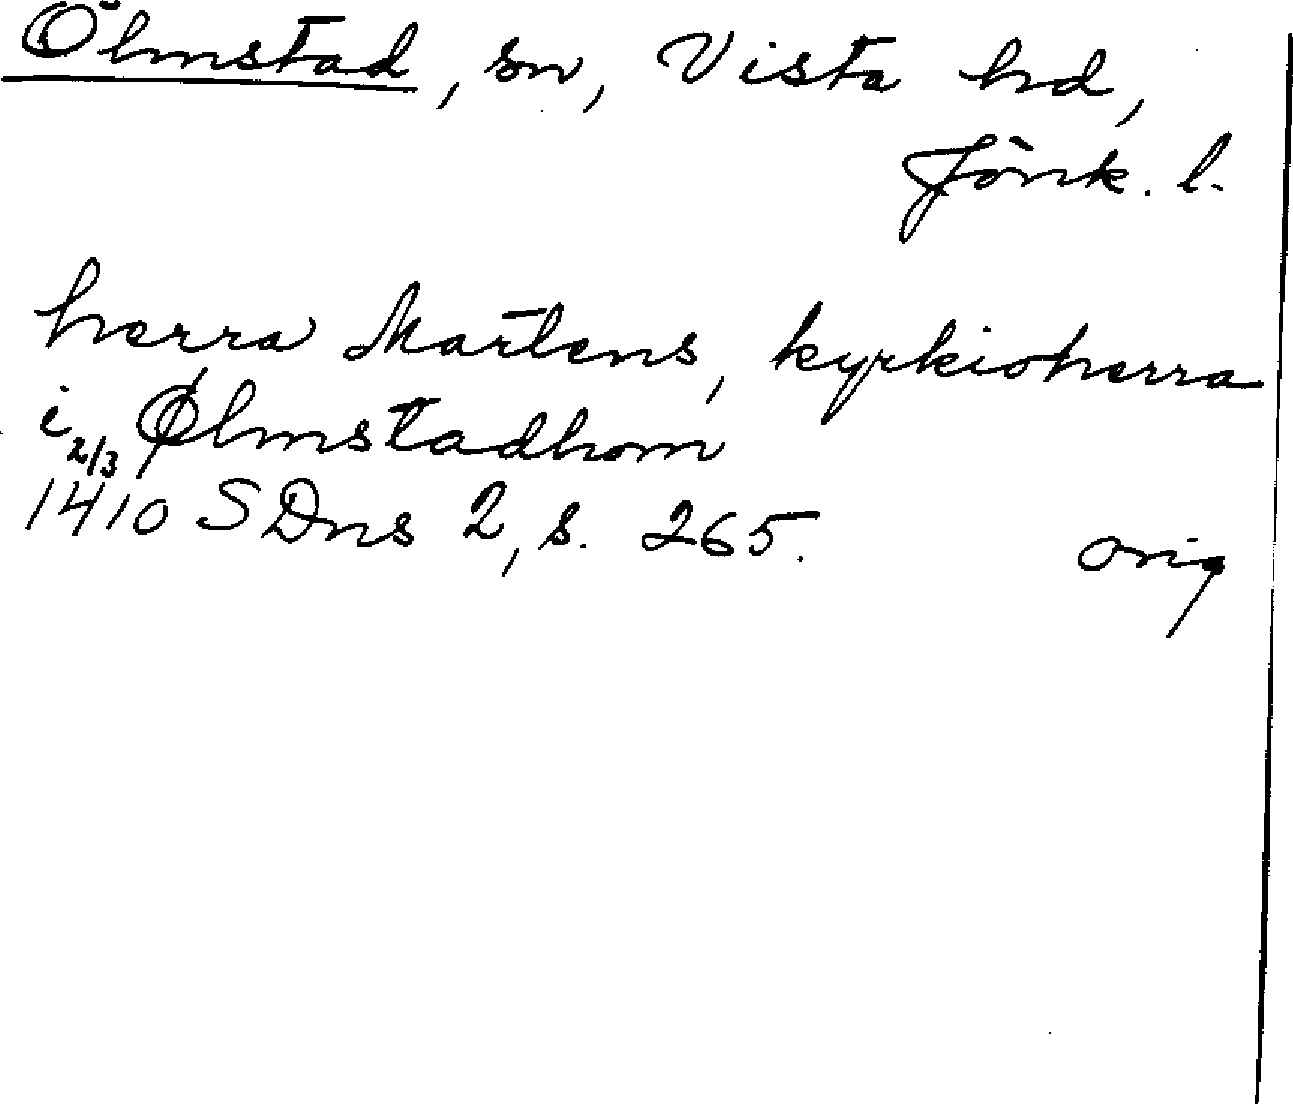 Ölmstad, sn, Vista hd,
Jönk. l.
herra Martens, kyrkioherra
i Ølmstadhom
2/3
1410 SDns 2, s. 265.
orig